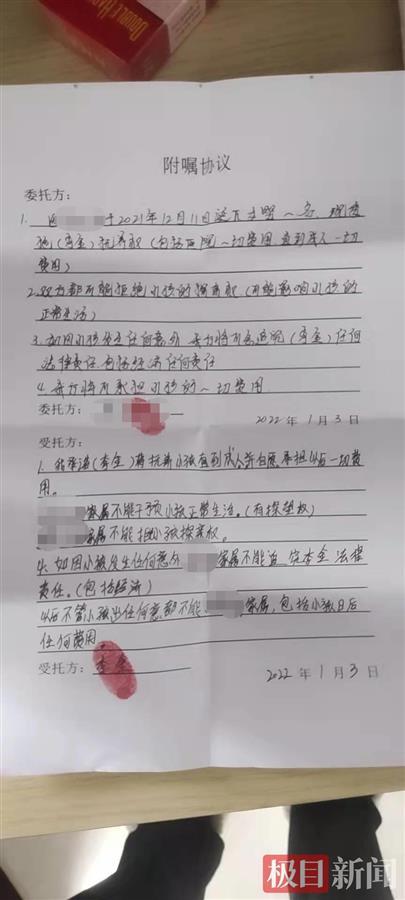 DOUBLE HA
附嘱协议
委托方：
1. 于2021年12月11日诞下 一名，现委
托（李金）抚养权（包括医院一切费用直到
费用）
2.双方都不能拒绝小孩的探亲权（不能影响小孩的
正常生活）
3.如因小孩发生任何意外 将不会追究（李金）任何
法律责任包括经济任何责任
4. 将不承担小孩的一切费用
委托方：
2022年1月3日
受托方：
1.我承诺（李金）将抚养小孩直到成人并自愿承担以后一切费
用。
家属不能干预小孩正常生活。（有探望权）
家属不能拒小孩探亲权。
4.如因小孩发生任何意外 家属不能追究李金法律
责任。（包括经济）
以后不管小孩出任何意 都不能 家属，包括小孩日后
任何费用。
受托方：李金
2022年1月3日
极目新闻